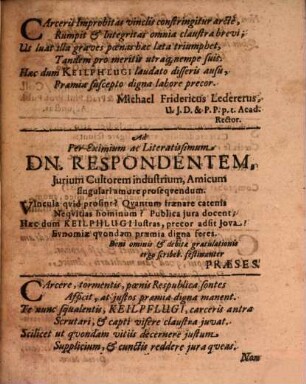 Carcerit Improbitas vinclis constringitur arctè,
Rumpit & Integritas omnia claustra brevi;
Ut luat illa graves pœnas hæc læta triumphet,
Tandem pro meritis utraq; nempe suit.
Hæc dum KEILPHLUGI laudato disseris ausu,
Præmia suscepto digna labore precor.
Michael Fridericus Ledererus,
U. J. D. & P. P. p. t. Acad.
Rector.
Ad
Per-Eximium ac Literatissimum
DN. RESPONDENTEM,
Jurium Cultorem industrium, Amicum
singulari amore prosequendum.
Vincula qvid prosint? Qvantum frænare catenis
Neqvitias hominum? Publica jura docent;
Hæc dum KEILPHLUGI lustras, precor adsit Jova!
Evnomiæ qvondam præmia digna feret.
Boni ominis & debitæ gratulationis
ergo scribeb. festinanter
PRÆSES.
Carcere, tormentis, pœnis Respublica sontes
Afficit, at justos præmia digna manent.
Te nunc squalentis, KEILPFLUGI, carceris antra
Scrutari, & capti visere claustra juvat.
Scilicet ut qvondam vitiis decernere justum
Supplicium, & cunctis reddere jura queas.
Non